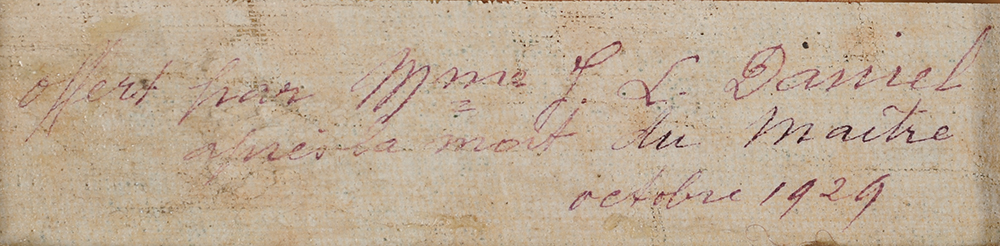 offert par Mme J. L. Daniel
après la mort du Maître
octobre 1929